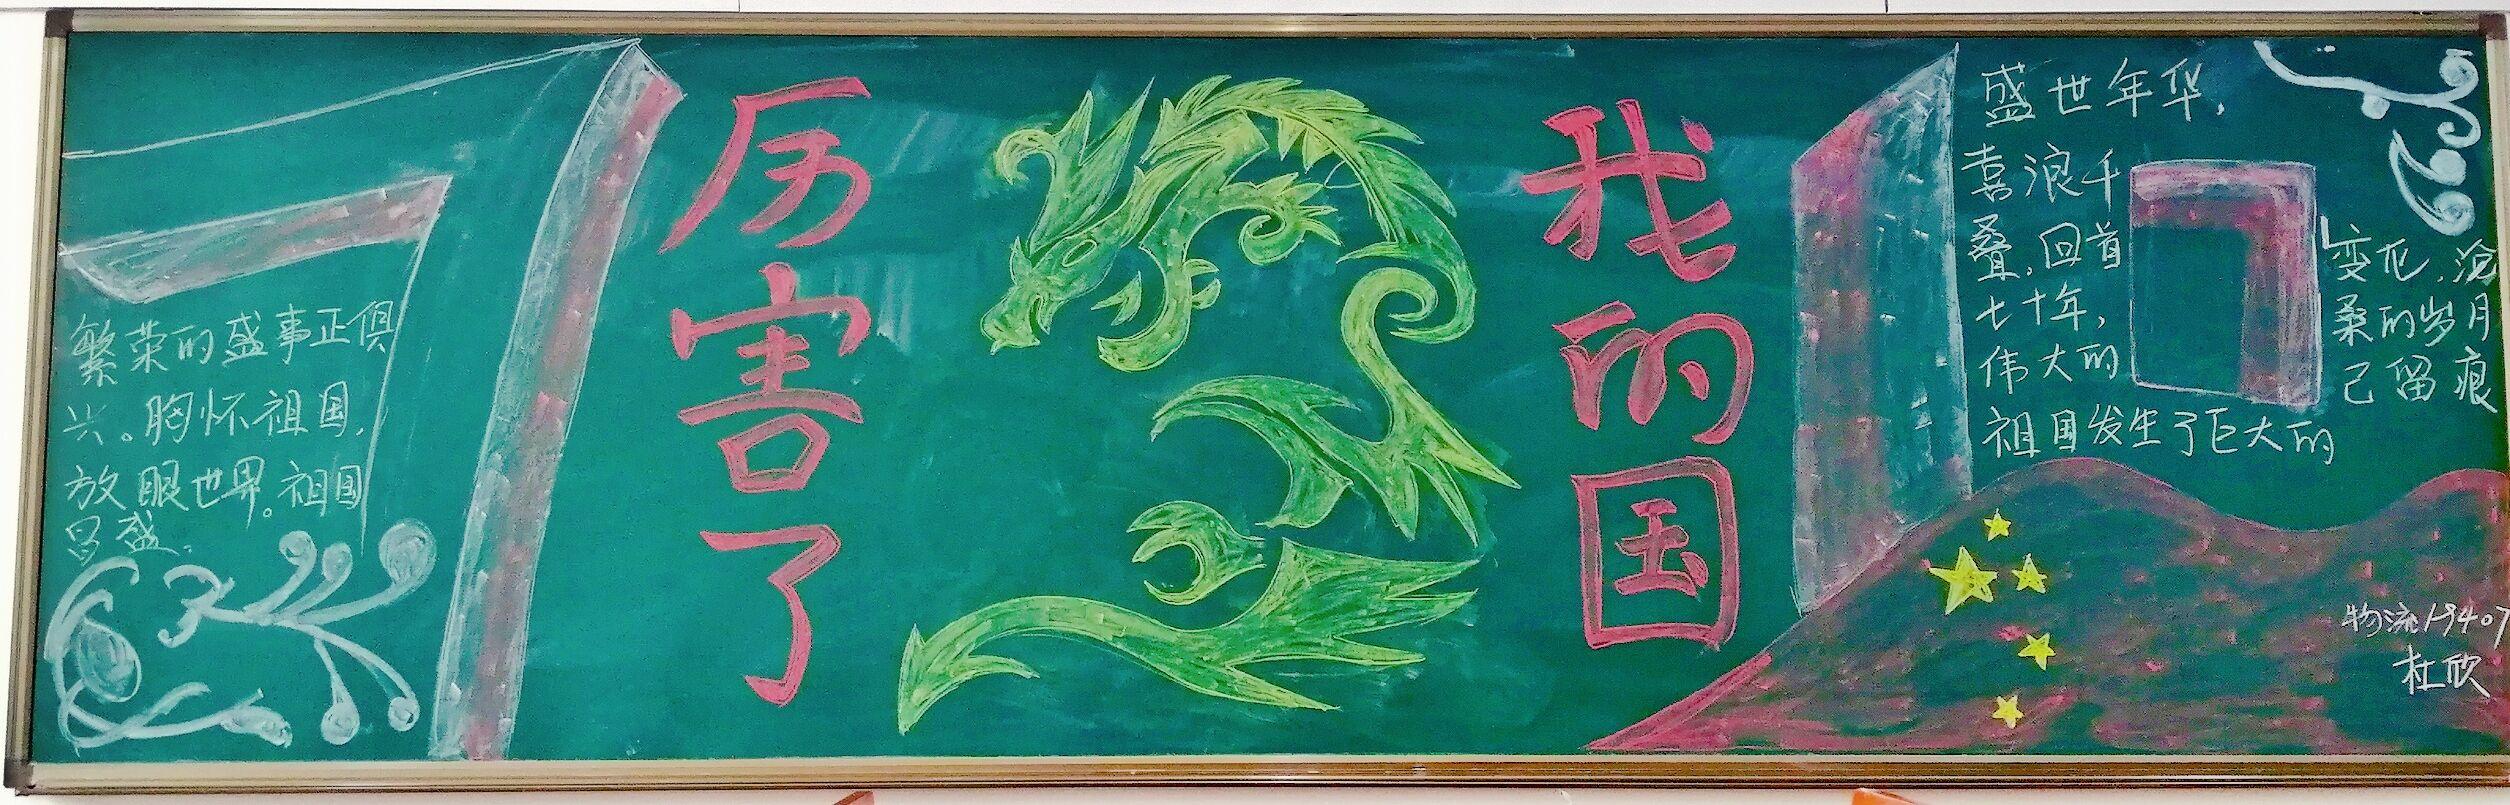 7
繁荣的盛事正俱
兴。胸怀祖国,
放眼世界。祖国
昌盛.
厉害了
我的国
0
盛世年华,
喜浪千
叠,回首
七十年,
伟大的
祖国发生了巨大的
变化,沧
桑的岁月
已留痕
物流19407
杜欣